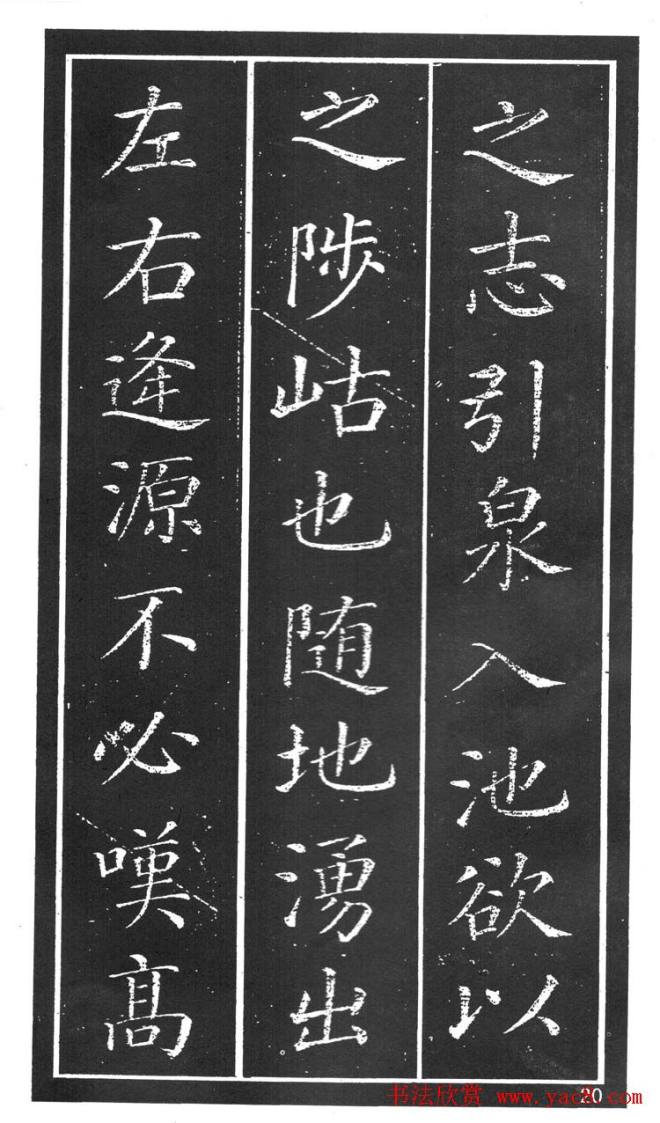 之志引泉入池欲以
之陟岵也随地湧出
左右逢源不必嘆高
20
书法欣赏 www.yac8.com